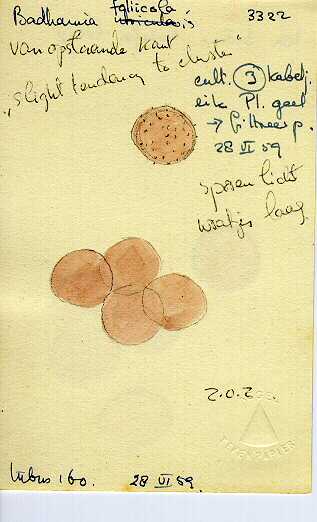 Badhamia foliicola 3322
utricularis
van opstaande kant
"slight tendency to cluster"
cult. 3 kabelj.
eik Pl. geel
→
28 VI 59
sporen licht
wratjes laag
2.0.2
TEKENPAPIER
tubus 160. 28 VI 59.